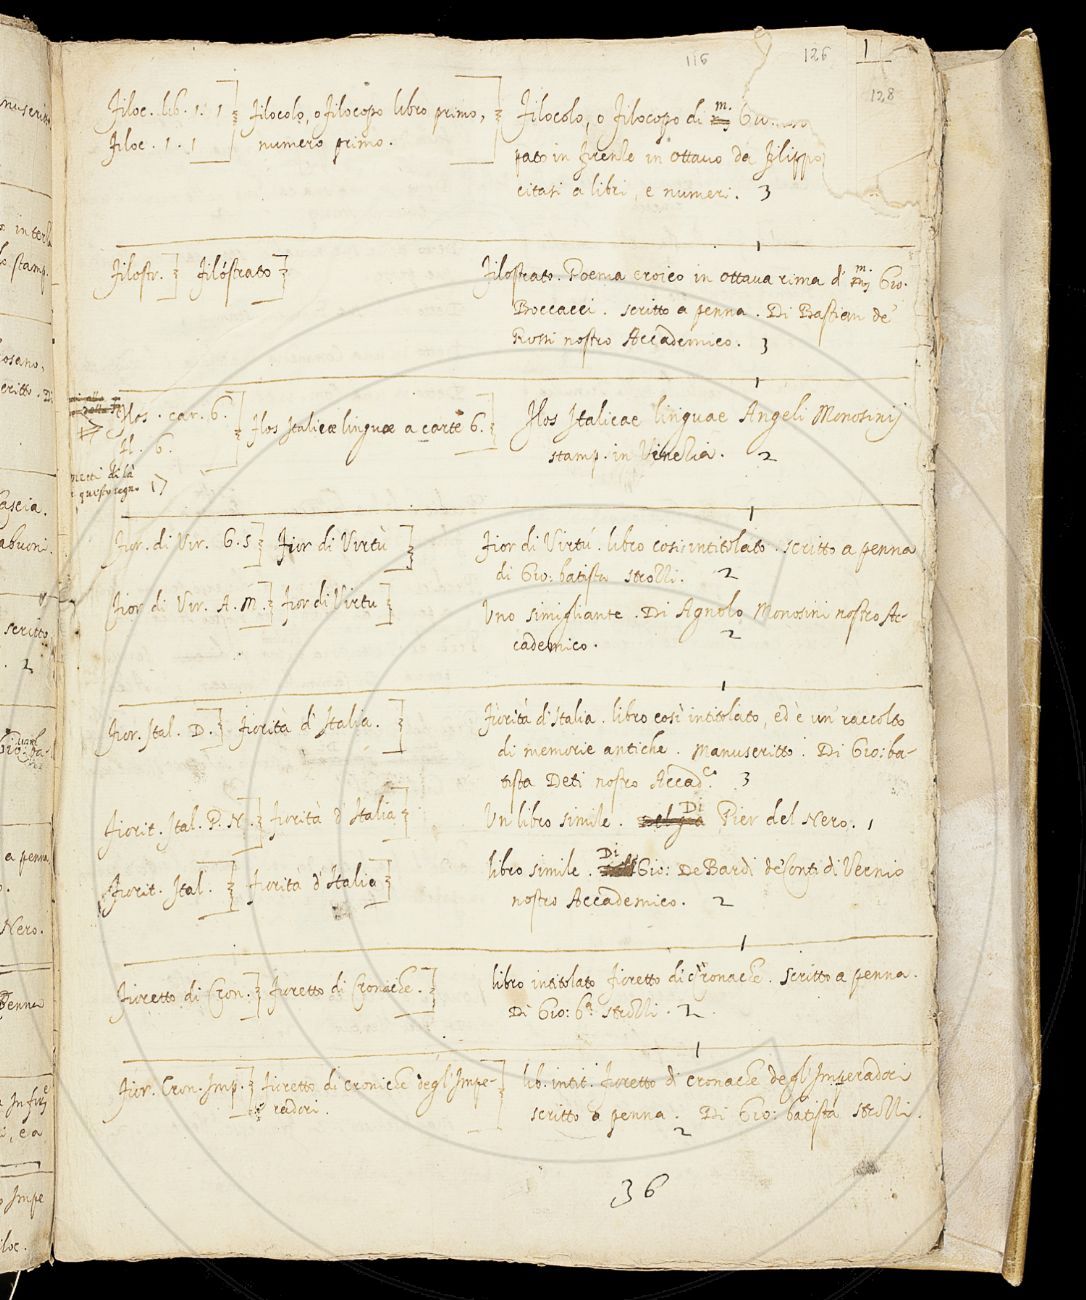 116 126 1
128
Filoc. lib. 1. 1] Filocolo, o filocopo libro primo, Filocolo, o Filocopo di m. Gio.
Filoc. 1. 1 numero primo. pato in Firenze in ottauo da Filippo
citasi a libri, e numeri. 3
1
Filostr.] Filóstrato] Filostrato. Poema eroico in ottaua rima d' m. Gio.
Boccacci. scritto a penna. Di Bastian de'
Rossi nostro Accademico. 3
1
Flos. car. 6. Flos Italicæ linguæ a carte 6.] Flos Italicae linguae Angeli Monosinij
fl. 6. stamp. in Venezia. 2
metti di là
questo segno
1
Fior. di Vir. G. S] Fior di Virtù] Fior di Virtú. libro così intitolato. scritto a penna
di Gio: batista strozzi. 2
Fior di Vir. A. M.] fior di Virtu] Uno simigliante. Di Agnolo Monosini nostro Ac-
cademico. 2
1
Fior. Ital. D.] fiorità d'Italia.] Fiorità d'Italia. libro così intitolato, ed è un' raccolto
di memorie antiche. Manuscritto. Di Gio: ba-
tista Deti nostro Accad.co 3
fiorit. Ital. P. N.] fiorità d'Italia] Un libro simile. Di Pier del Nero. 1
Fiorit. Ital.] fiorità d'Italia] libro simile. Di Gio: De Bardi de' Conti di Vernio
nostro Accademico. 2
1
Fioretto di Cron.] fioretto di Cronache.] libro intitolato fioretto di cronache. scritto a penna.
Di Gio: b.a strozzi. 2
1
Fior. Cron. Imp.] fioretto di croniche degl'Impe- lib. intit. fioretto di cronache degl'Imperadori
radori. scritto a penna. Di Gio: batista strozzi.
2
36